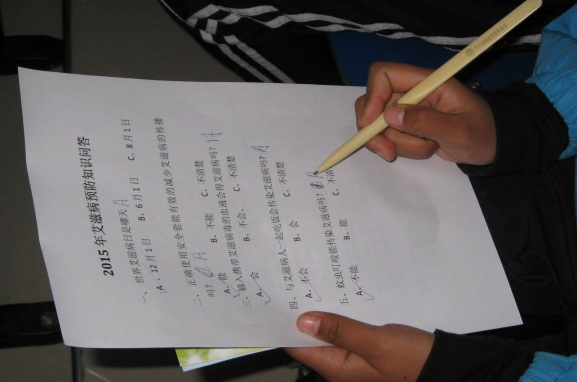 2015年艾滋病预防知识问答
一、世界艾滋病日是哪天 A
A、12月1日 B、6月1日 C、8月1日
二、正确使用安全套能有效的减少艾滋病的传播
吗? A
A、能 B、不能 C、不清楚
三、输入携带艾滋病毒的血液会得艾滋病吗? A
A、会 B、不会、 C、不清楚
四、与艾滋病人一起吃饭会传染艾滋病吗? A
A、不会 B、会 C、不清楚
五、蚊虫叮咬能传染艾滋病吗? A
A、不能 B、能 C、不清